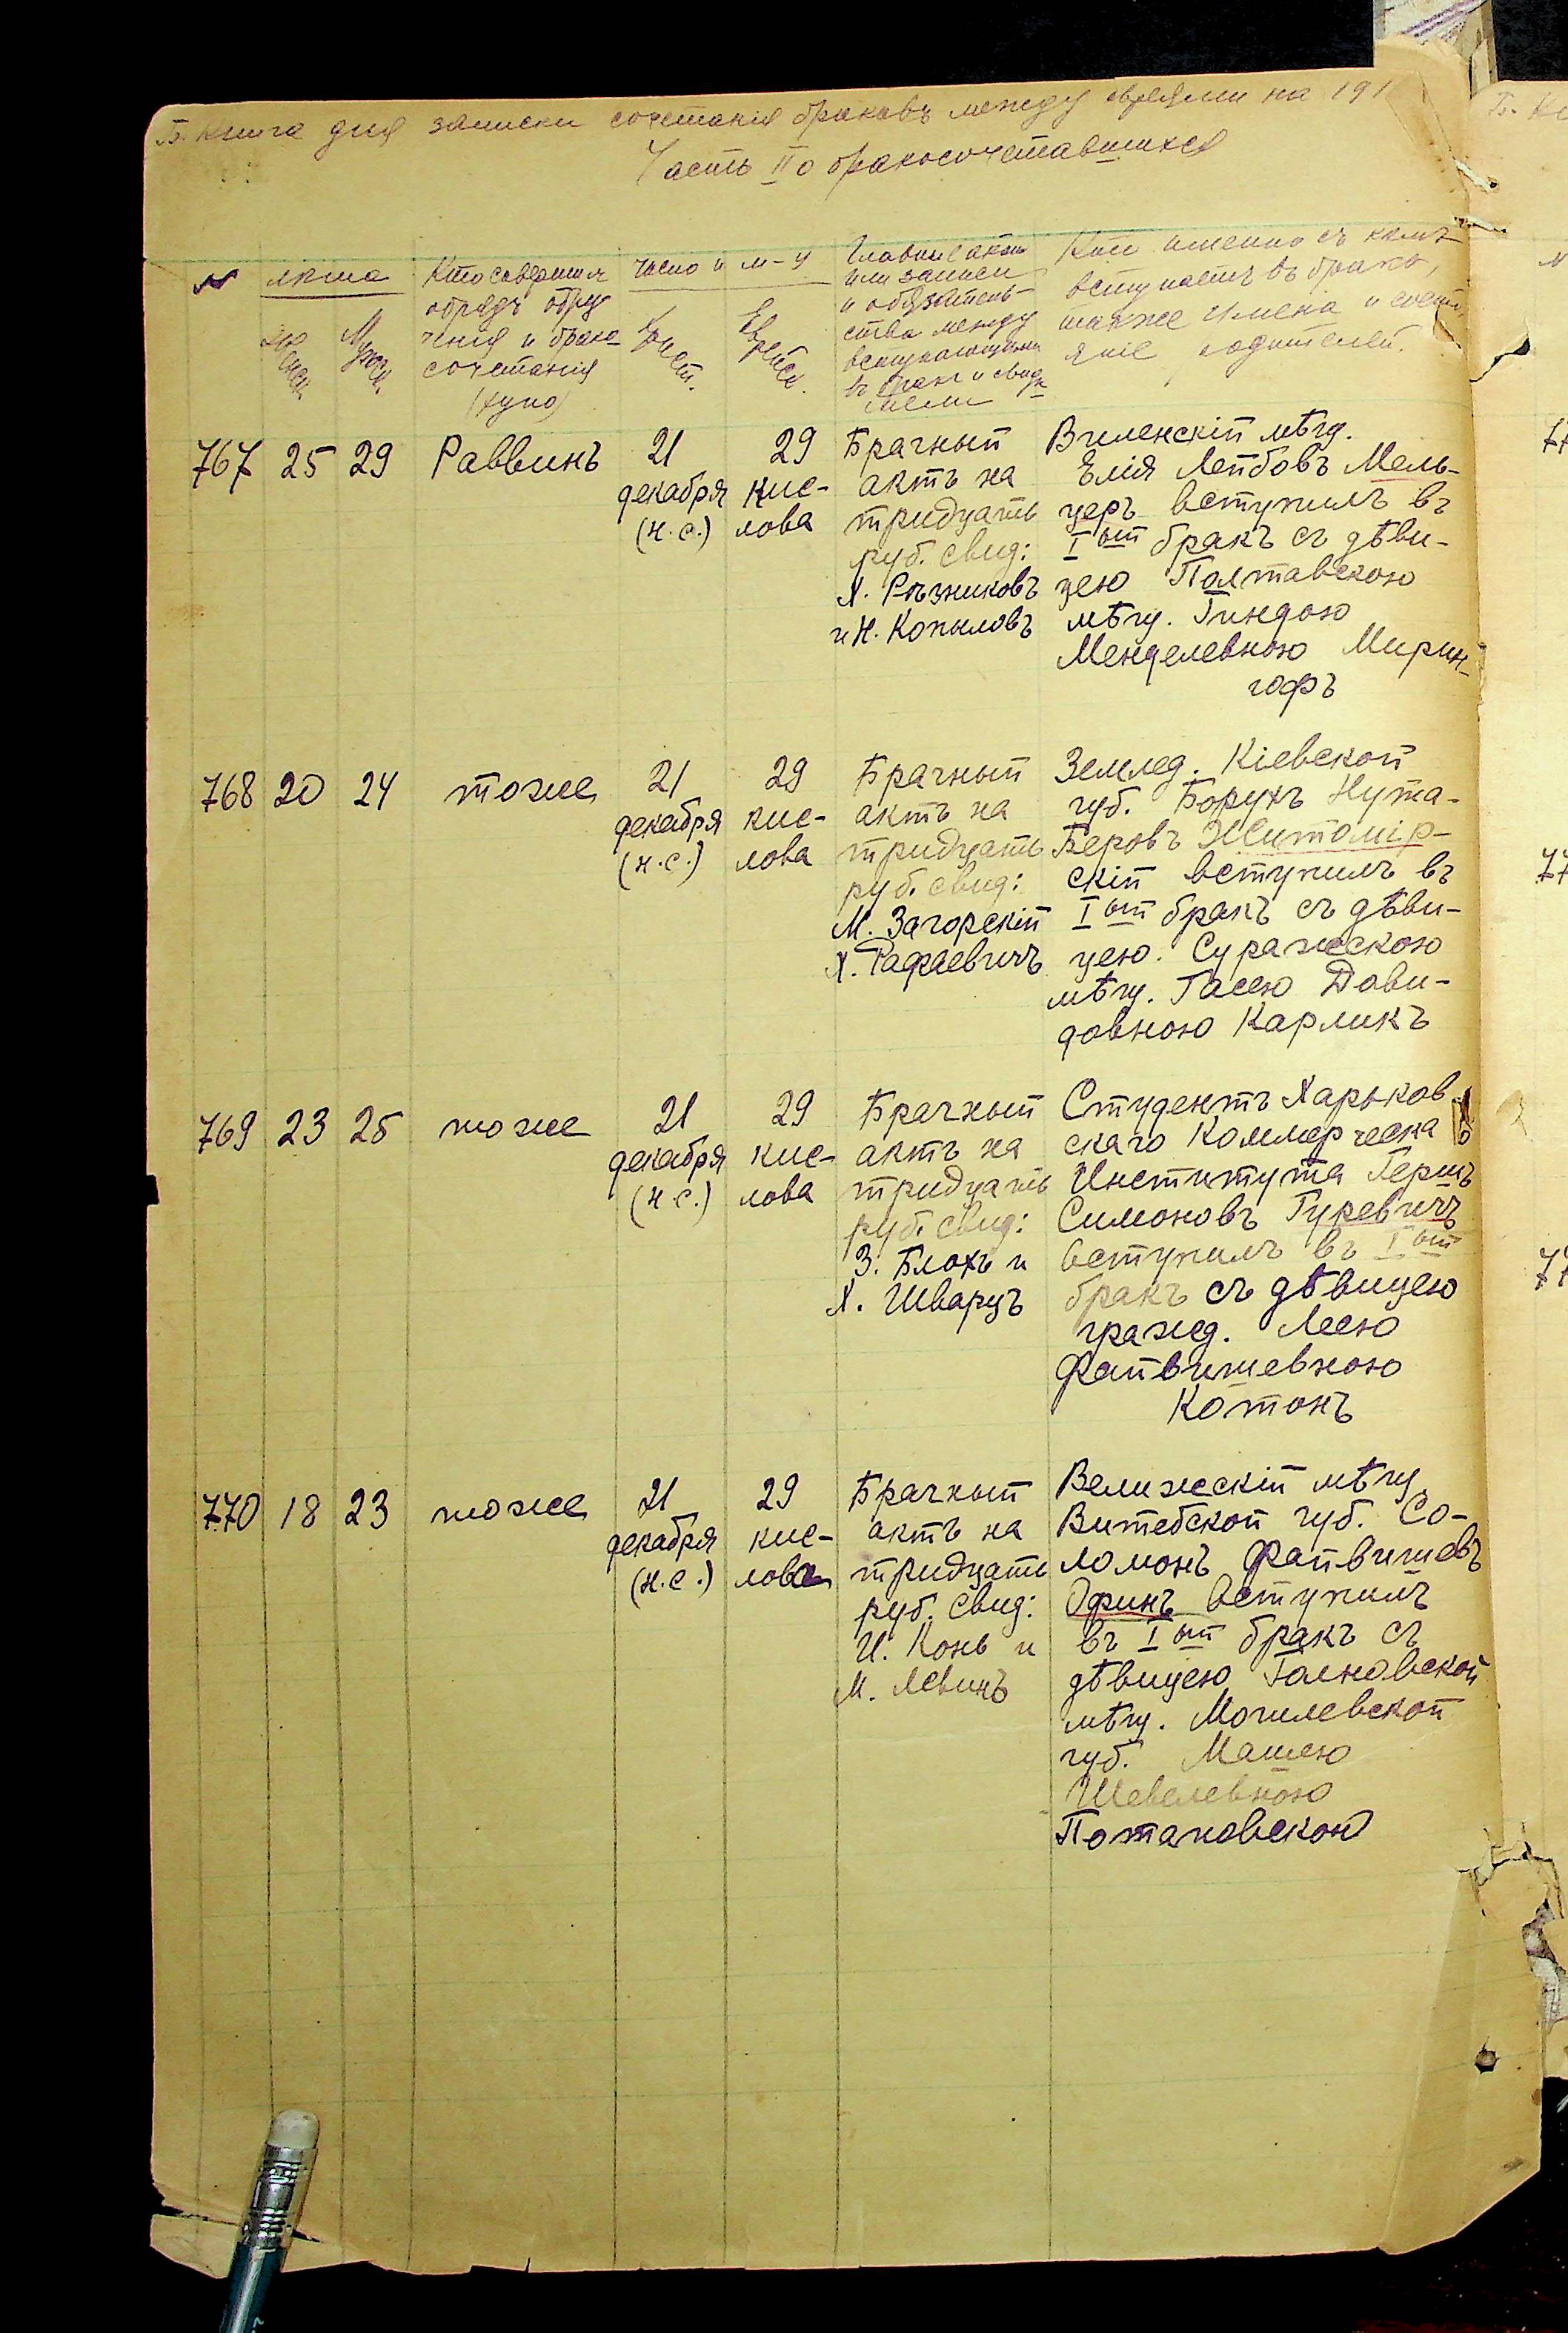 Б. книга для записки сочетанія браковъ между евреями на 191
Часть II о бракосочетавшихся
№
лета
женск.
Мужск.
Кто совершил
обрядъ обру
ченія и брако
сочетанія
(хупо)
число и м-ц
Христ.
Еврейск.
Главные акты
или записи
и обязатель-
ства между
вступающими
въ бракъ и свидѣ
тели
Кто именно съ кемъ
вступаетъ въ бракъ,
также имена и состо
яніе родителей.
767 25 29 Раввинъ
21
декабря
(н.с.)
29
кис-
лова
Брачный
актъ на
тридцать
руб. свид:
Х. Рѣзниковъ
и Н. Копыловъ
Виленскій мѣщ.
Элія Лейбовъ Мель-
церъ вступилъ въ
Iый бракъ съ дѣви-
цею Полтавскою
мѣщ. Гиндою
Менделевною Мирин-
гофъ
768 20 24 тоже
21
декабря
(н.с.)
29
кис-
лова
Брачный
актъ на
тридцать
руб. свид:
М. Загорскій
Х. Рафаевичъ
Землед. Кіевской
губ. Борухъ Нута-
Беровъ Житомір-
скій вступилъ въ
Iый бракъ съ дѣви-
цею. Суражскою
мѣщ. Гасею Дави-
довною Карликъ
769 23 25 тоже
21
декабря
(н.с.)
29
кис-
лова
Брачный
актъ на
тридцать
руб. свид:
З. Блохъ и
Х. Шварцъ
Студентъ Харьков
скаго Коммерческа
Института Гершъ
Симоновъ Гуревичъ
вступилъ въ Iый
бракъ съ дѣвицею
гражд. Леею
Файвишевною
Котонъ
770 18 23 тоже
21
декабря
(н.с.)
29
кис-
лова
Брачный
актъ на
тридцать
руб. свид:
И. Конь и
М. Левинъ
Велижскій мѣщ
Витебской губ. Со-
ломонъ Файвишевъ
Офинъ вступилъ
въ Iый бракъ съ
дѣвицею
мѣщ. Могилевской
губ. Машею
Шевелевною
Потаповской